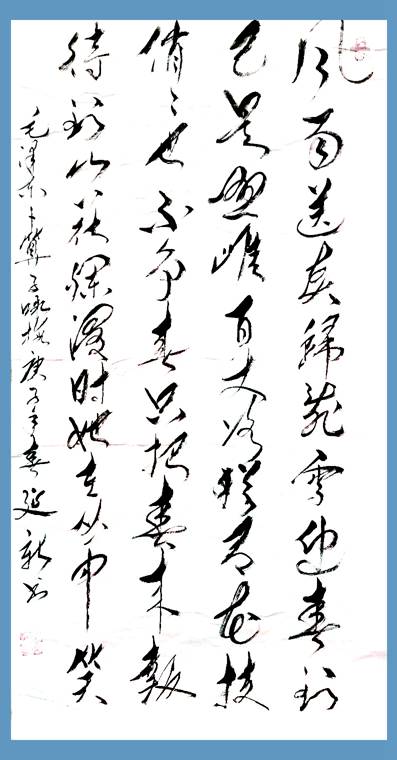 风雨送春歸飛雪迎春到
已是悬崖百丈冰猶有花枝
俏〻也不争春只把春来報
待到山花烂漫时她在丛中笑
毛泽东卜算子咏梅庚子年春延新书